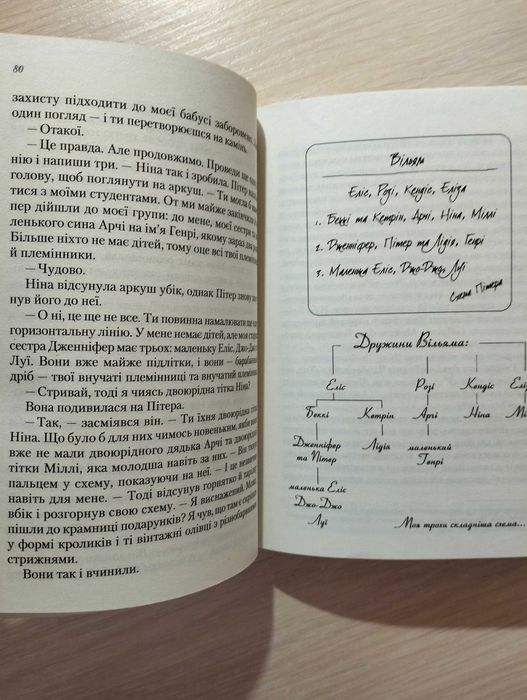 80
захисту підходити до моєї бабусі заборонено.
один погляд — і ти перетворюєшся на камінь.
— Отакої.
— Це правда. Але продовжимо. Проведи ще
нію і напиши три. — Ніна так і зробила. Пітер
голову, щоб поглянути на аркуш. — Ти могла б
тися з моїми студентами. От ми майже закінчи
пер дійшли до моєї групи: до мене, моєї сестри та
ленького сина Арчі на ім’я Генрі, якому зараз два ро
Більше ніхто не має дітей, тому оце всі твої племінни
й племінники.
— Чудово.
Ніна відсунула аркуш убік, однак Пітер знову
нув його до неї.
— О ні, це ще не все. Ти повинна намалювати ще
горизонтальну лінію. У мене немає дітей, але моя ста
сестра Дженніфер має трьох: маленьку Еліс, Джо-Джо
Луї. Вони вже майже підлітки, і вони — барабанний
дріб — твої внучаті племінниці та внучатий племінник
— Стривай, тоді я чиясь двоюрідна тітка Ніна?
Вона подивилася на Пітера.
— Так, — засміявся він. — Ти їхня двоюрідна тітка
Ніна. Що було б для них чимось новеньким, якби вони
вже не мали двоюрідного дядька Арчі та двоюрідної
тітки Міллі, яка молодша навіть за них. — Він тицьнув
пальцем у схему, показуючи на неї. — І це
навіть для мене. — Тоді відсунув горнятко й тарілку
вбік і розгорнув свою схему. — Я виснажений. Може,
пішли до крамниці подарунків? Я чув, що там є
у формі кроликів і ті вінтажні олівці з різнобарвними
стрижнями.
Вони так і вчинили.
Вільям
Еліс, Розі, Кендіс, Еліза
1. Беккі та Кетрін, Арчі, Ніна, Міллі
2. Дженніфер, Пітер та Лідія, Генрі
3. Маленька Еліс, Джо-Джо, Луї
Схема Пітера
Дружини Вільяма:
Еліс Розі Кендіс Еліз
Беккі Кетрін Арчі Ніна Мі
Дженніфер
та Пітер Лідія маленький
Генрі
маленька Еліс
Джо-Джо
Луї
Моя трохи складніша схема...